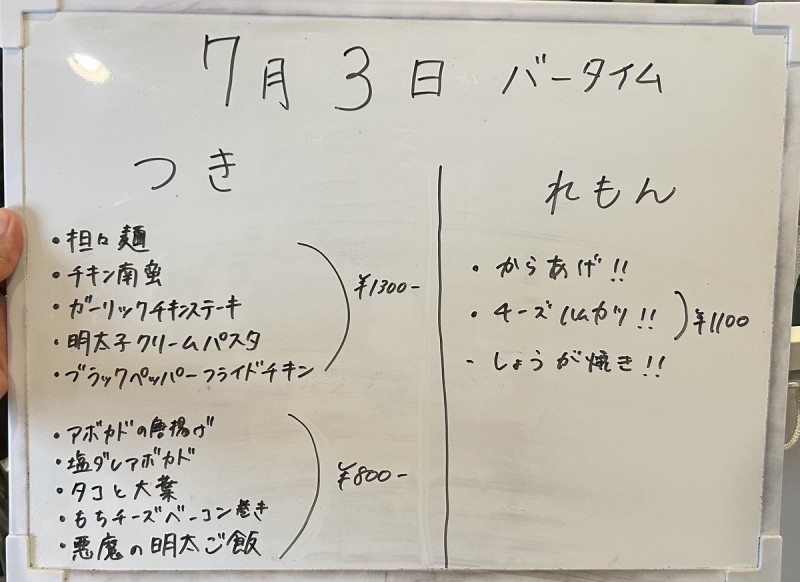 7月3日 バータイム
つき
・担々麺
・チキン南蛮
・ガーリックチキンステーキ
・明太子クリームパスタ
・ブラックペッパーフライドチキン
¥1300-
・アボカドの唐揚げ
・塩ダレアボカド
・タコと大葉
・もちチーズベーコン巻き
・悪魔の明太ご飯
¥800-
れもん
・からあげ!!
・チーズハムカツ!!
・しょうが焼き!!
¥1100